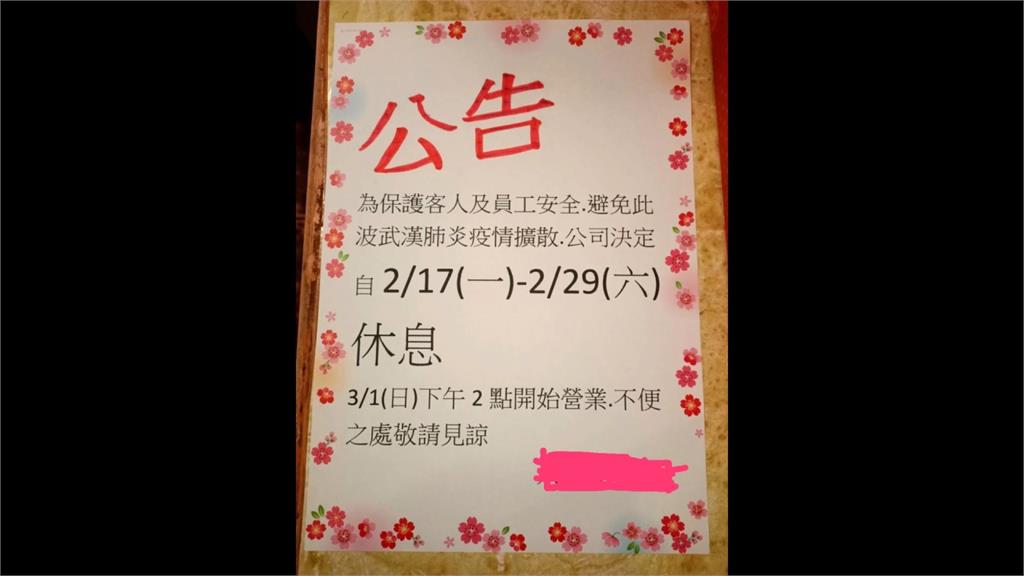 公告
為保護客人及員工安全.避免此
波武漢肺炎疫情擴散.公司決定
自 2/17(一)-2/29(六)
休息
3/1(日)下午 2 點開始營業.不便
之處敬請見諒